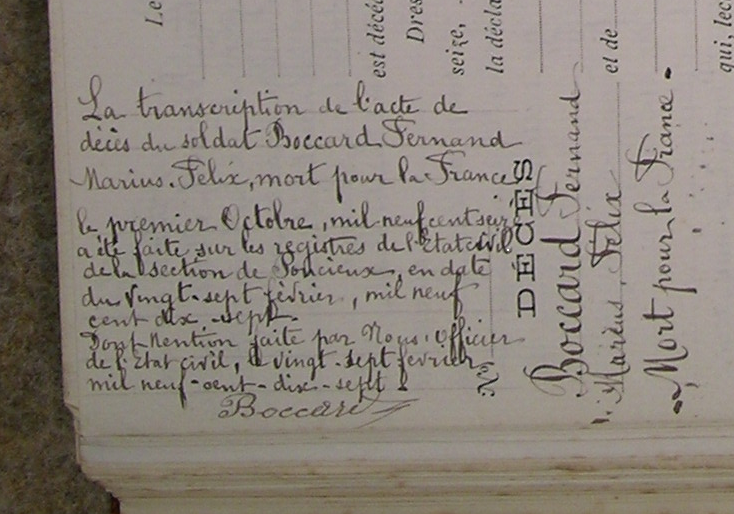 La transcription de l'acte de
décès du soldat Boccard Fernand
Marius. Felix, mort pour la France
le premier Octobre, mil neuf cent seize
a été faite sur les registres de l'Etat civil
de la section de Poncieux, en date
du vingt-sept février, mil neuf
cent dix-sept.
Dont Mention faite par Nous, Officier
de l'Etat civil, le vingt-sept février
mil neuf-cent-dix-sept.
Boccard
Le
est décéd
Dres
seize,
la décla
N°
DÉCÈS
Boccard Fernand
Marius, Felix
et de
Mort pour la France
qui, lec